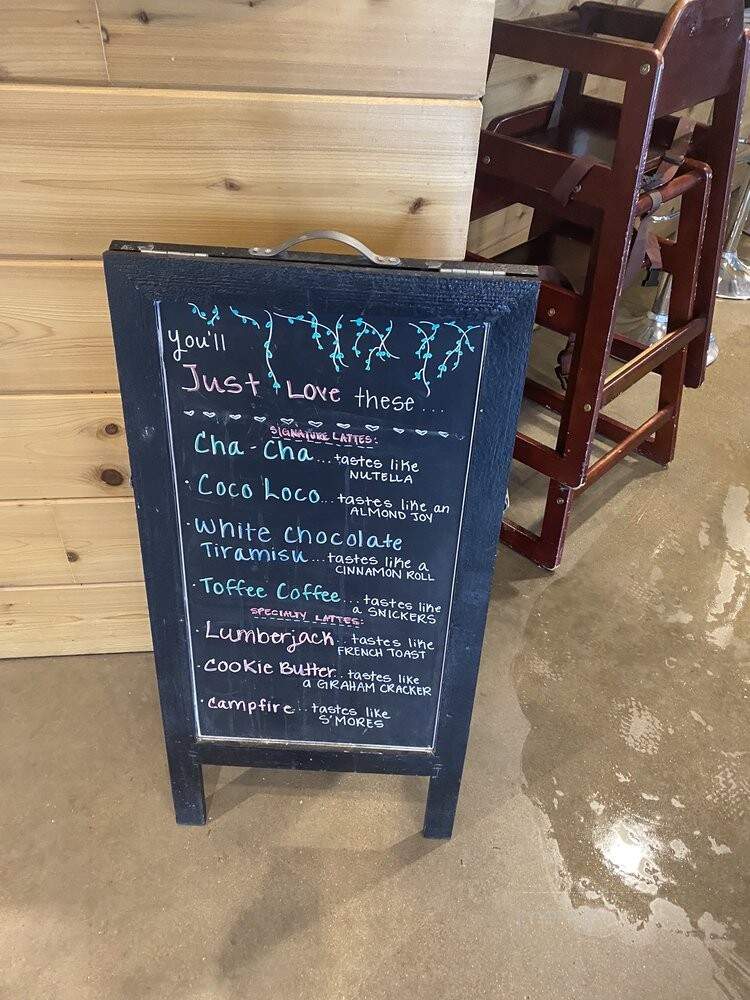 you'll
Just Love these...
SIGNATURE LATTES:
Cha-Cha...tastes like
NUTELLA
· Coco Loco...tastes like an
ALMOND JOY
· White Chocolate
Tiramisu...tastes like a
CINNAMON ROLL
· Toffee Coffee...tastes like
a SNICKERS
SPECIALTY LATTES:
· Lumberjack..tastes like
FRENCH TOAST
· Cookie Butter..tastes like
a GRAHAM CRACKER
· campfire...tastes like
S'MORES